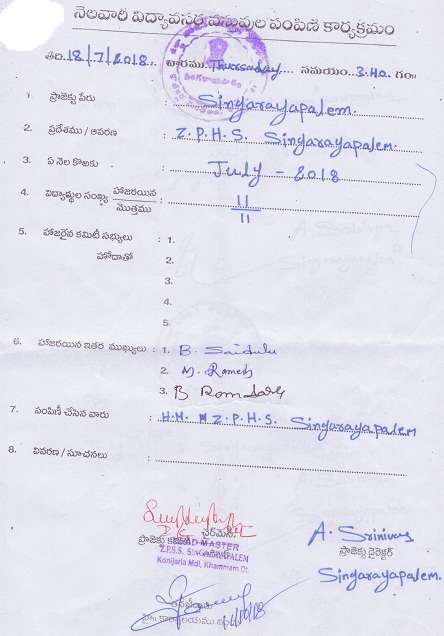 నెలవారీ విద్యావసర వస్తువుల పంపిణి కార్యక్రమం
తేది 18/7/2018. వారము Thursday సమయం 3.40. గం॥
1. ప్రాజెక్టు పేరు : Singarayapalem.
2. ప్రదేశము / ఆవరణ : Z.P.H.S. Singarayapalem.
3. ఏ నెల కొఱకు : July - 2018
4. విద్యార్థుల సంఖ్య హాజరయిన / మొత్తము : 11 / 11
5. హాజరైన కమిటీ సభ్యులు : 1.
హోదాతో 2.
3.
4.
5.
6. హాజరయిన ఇతర ముఖ్యులు : 1. B. Saidulu
2. M. Ramesh
3. B
7. పంపిణీ చేసిన వారు : H.M. Z.P.H.S. Singarayapalem
8. వివరణ / సూచనలు :
ప్రాజెక్టు కమిటీ ఛైర్మెన్
HEAD MASTER
Z.P.S.S. SINGARAYAPALEM
Konijerla Mdl, Khammam Dt.
A. Srinivas
ప్రాజెక్టు డైరెక్టర్
Singarayapalem.